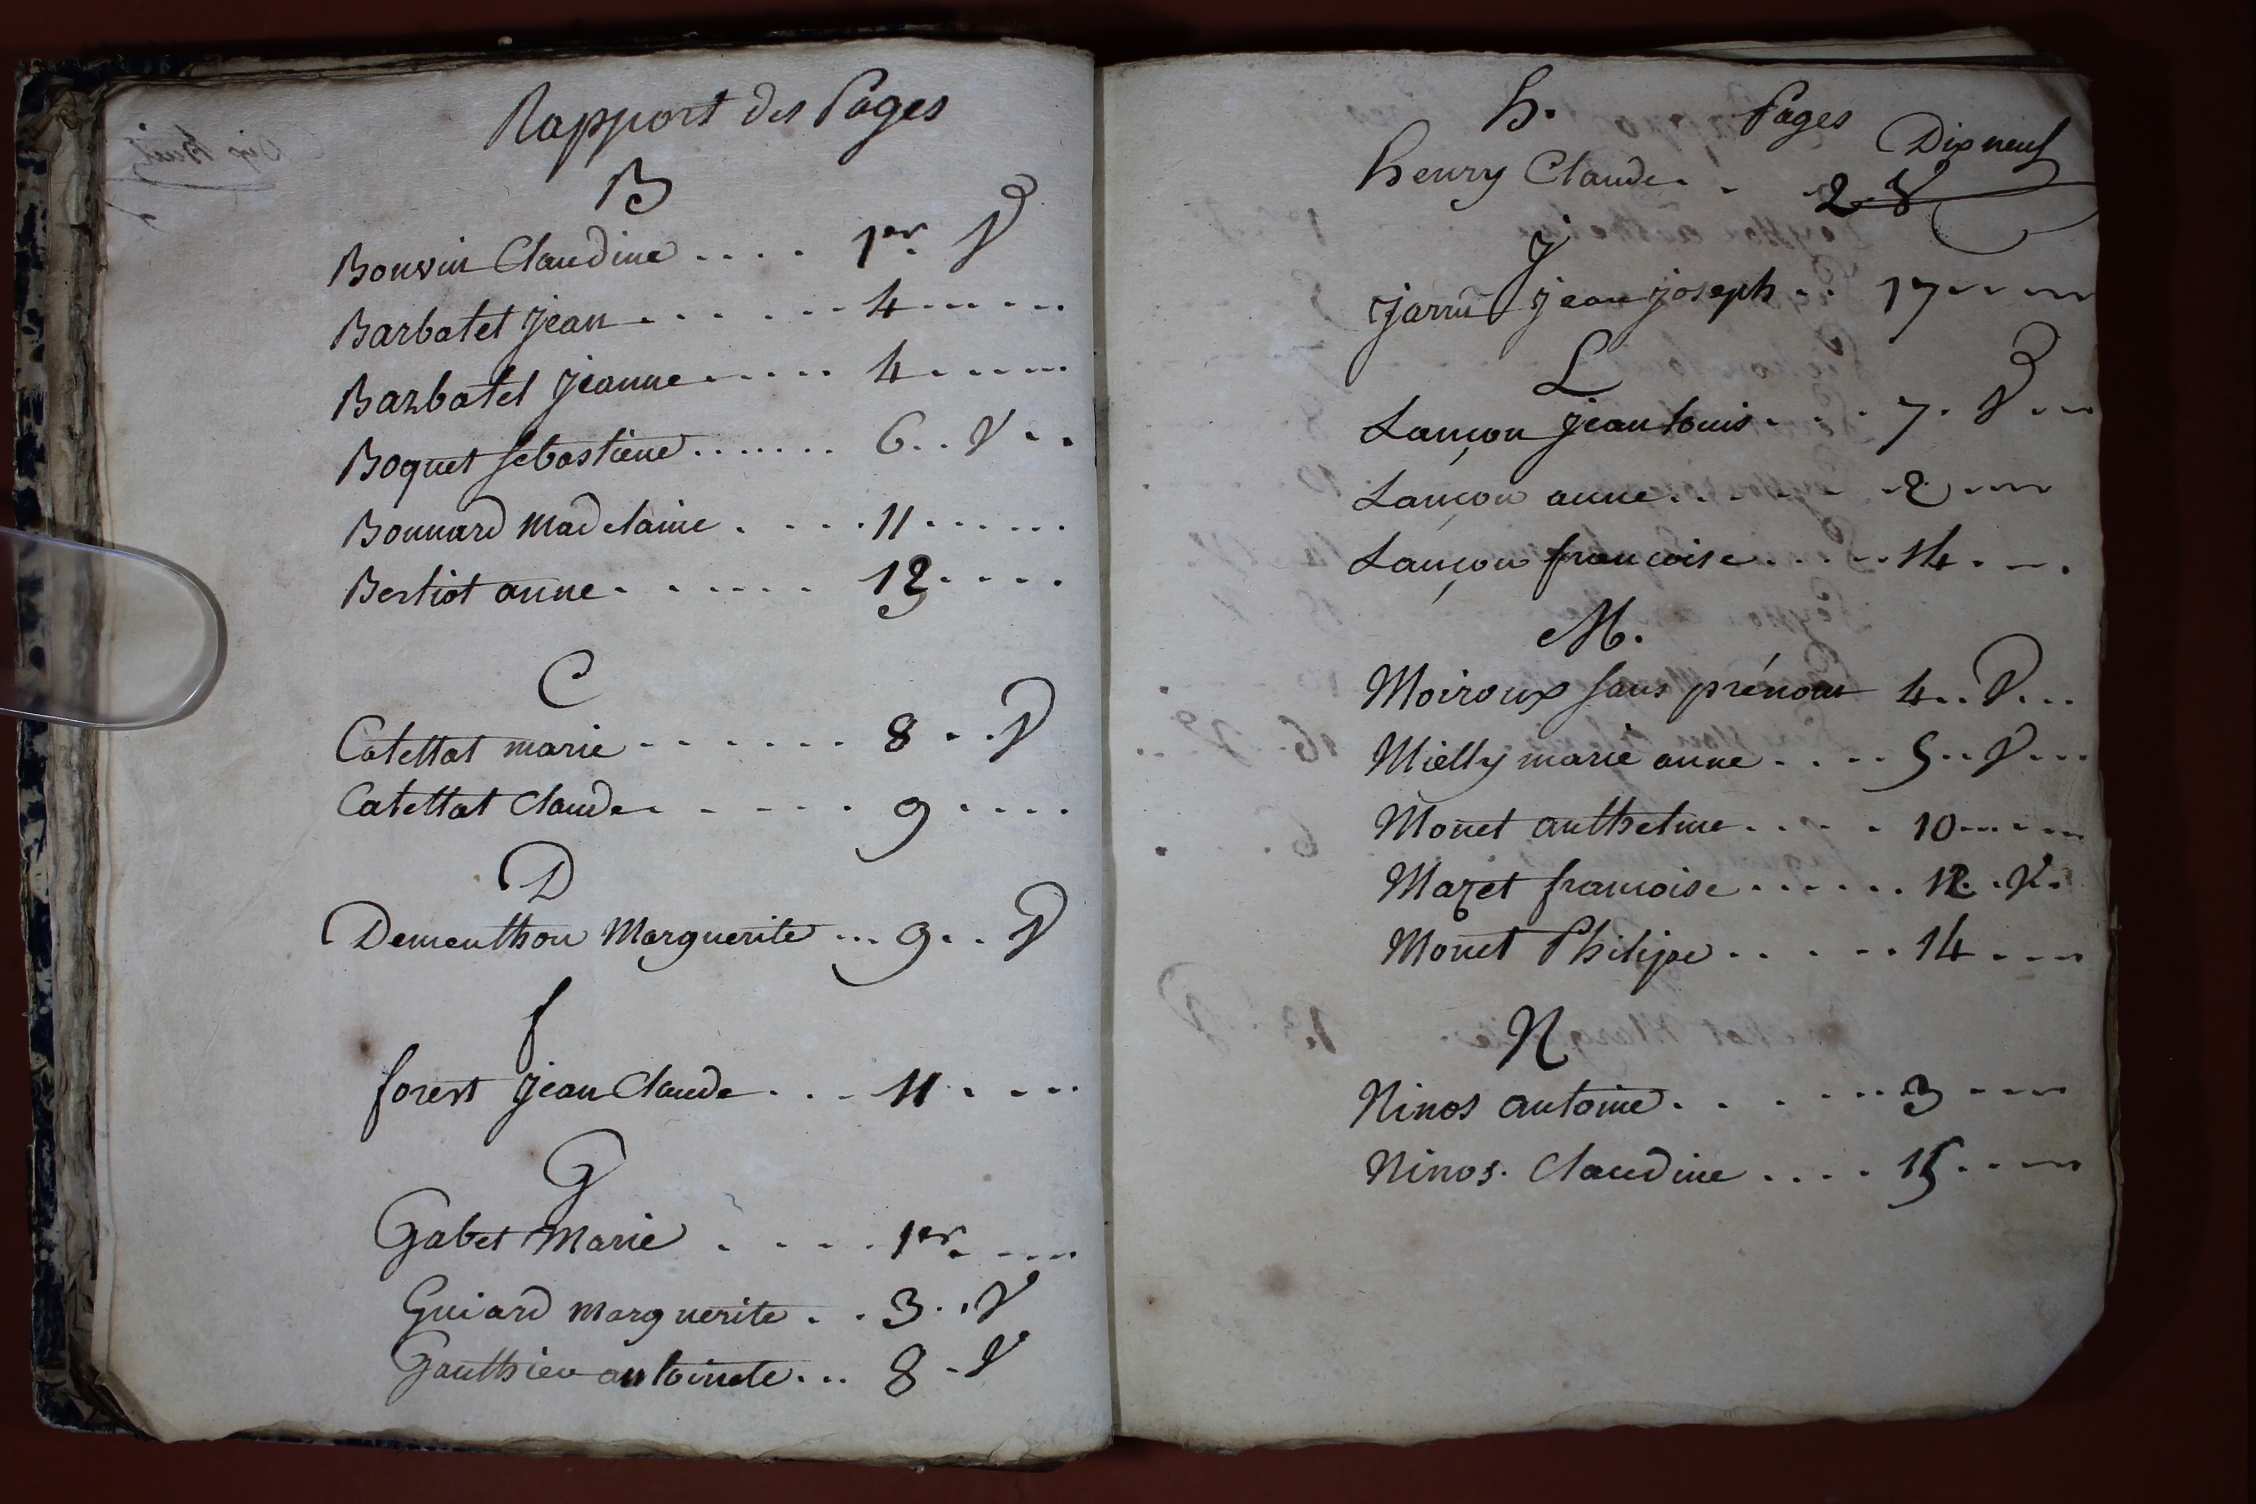 Rapport des Pages
B
Bonvin Claudine .... 1er V
Barbatet jean ...... 4 .....
Barbatet jeanne ..... 4 .....
Boquet sebastiene ....... 6 .. V ..
Bonnard Madelaine ..... 11 ......
Bertiot anne ...... 13 ....
C
Catettat marie ....... 8 ... V
Catettat Claude ..... 9 ....
D
Dementhon Marguerite ... 9 .. V
f
forest jean Claude ... 11 ....
G
Gabet Marie ..... 1er ....
Guiard marguerite .. 3 .. V
Gauthier antoinete ... 8 . V
h. Pages
Dix neuf
henry Claude .. 2 V
J
jean joseph .. 17 ....
L
Lançon jean louis .... 7 . V ...
Lançon anne ...... 2 ....
Lançon francoise ..... 14 ....
M.
Moiroux sans prénom 4 .. V ...
Mielly marie anne .... 5 .. V ...
Monet anthelme ..... 10 .....
Mazet francoise ...... 12 .. V.
Monet Philipe ...... 14 ....
N
Ninos antoine ...... 3 ....
Ninos. Claudine .... 15 ....